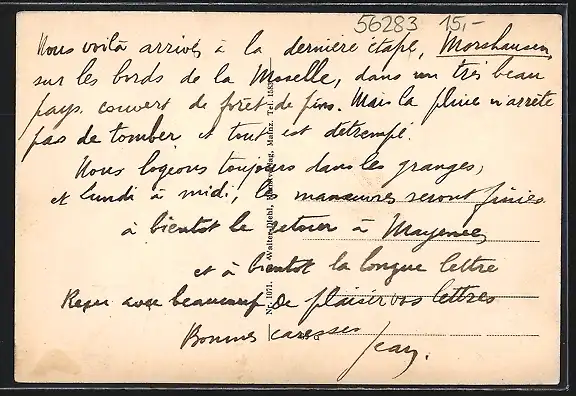 56283 15,-
Nous voilà arrivés à la dernière étape, Morshausen,
sur les bords de la Moselle, dans un très beau
pays couvert de forêt de pins. Mais la pluie n'arrête
pas de tomber et tout est détrempé.
Nous logeons toujours dans les granges,
et lundi à midi, les manœuvres seront finies
à bientôt le retour à Mayence,
et à bientôt la longue lettre
Reçu avec beaucoup de plaisir vos lettres
Bonnes caresses
Jean.
Nr. 1071. Walter Diehl, Mainz. Tel.